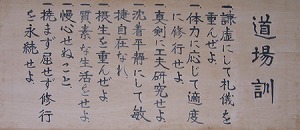 道場訓
一謙虚にして礼儀を
重んぜよ
一体力に応じて適度
に修行せよ
一真剣に工夫研究せよ
一沈着平静にして敏
捷自在なれ
一摂生を重んぜよ
一質素な生活をせよ
一慢心せぬこと
一撓まず屈せず修行
を永続せよ